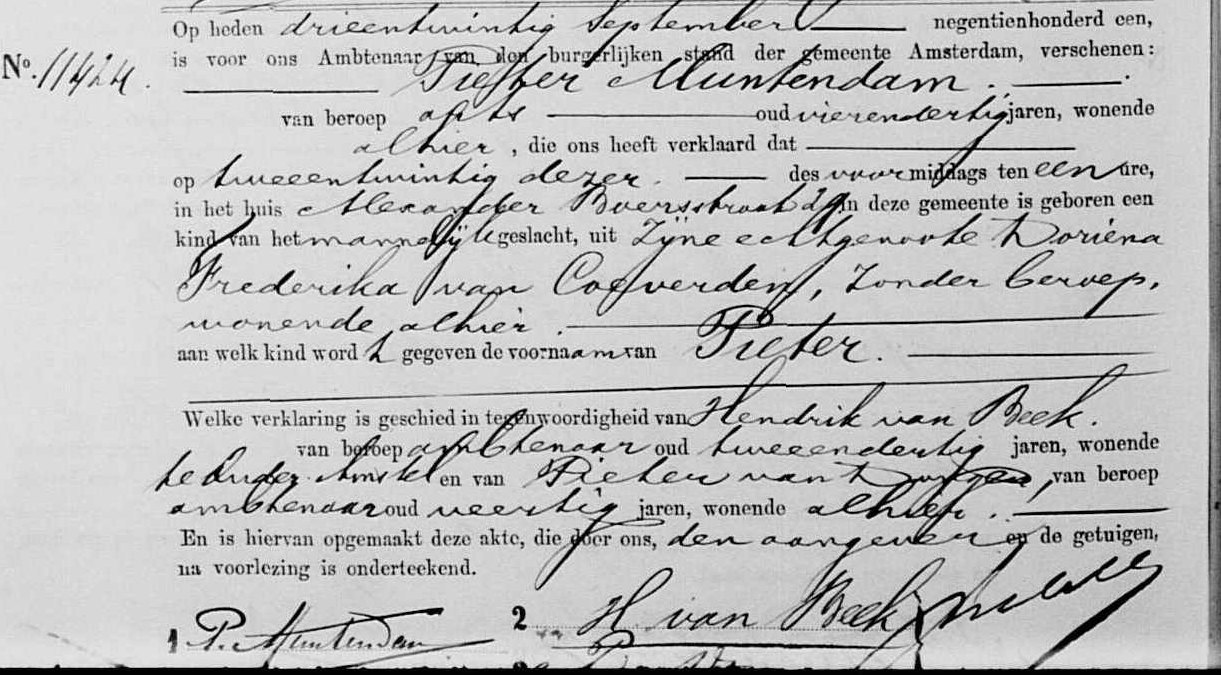 Op heden drieentwintig September negentienhonderd een,
No. 11424. is voor ons Ambtenaar van den burgerlijken stand der gemeente Amsterdam, verschenen:
Pieter Muntendam.
van beroep arts oud vierendertig jaren, wonende
alhier, die ons heeft verklaard dat
op tweeentwintig dezer. des voormiddags ten een ure,
in het huis Alexander Boersstraat in deze gemeente is geboren een
kind van het mannelijk geslacht, uit zijne echtgenoote Doriena
Frederika van Coeverden, zonder beroep,
wonende alhier.
aan welk kind wordt gegeven de voornaam van Pieter.
Welke verklaring is geschied in tegenwoordigheid van Hendrik van Beek.
van beroep ambtenaar oud tweeendertig jaren, wonende
te Ouder Amstel en van Pieter van, van beroep
ambtenaar oud veertig jaren, wonende alhier.
En is hiervan opgemaakt deze akte, die door ons, den aangever en de getuigen,
na voorlezing is onderteekend.
1 P. Muntendam 2 H van Beek